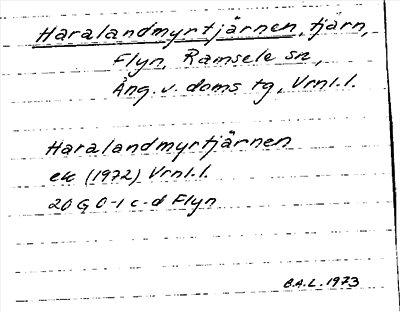 Haralandmyrtjärnen, tjärn,
Flyn, Ramsele sn,
Ång. v. doms tg, Vrnl.l.
Haralandmyrtjärnen
ek (1972) Vrnl.l.
20 G 0-1 c-d Flyn
B.A.L. 1973